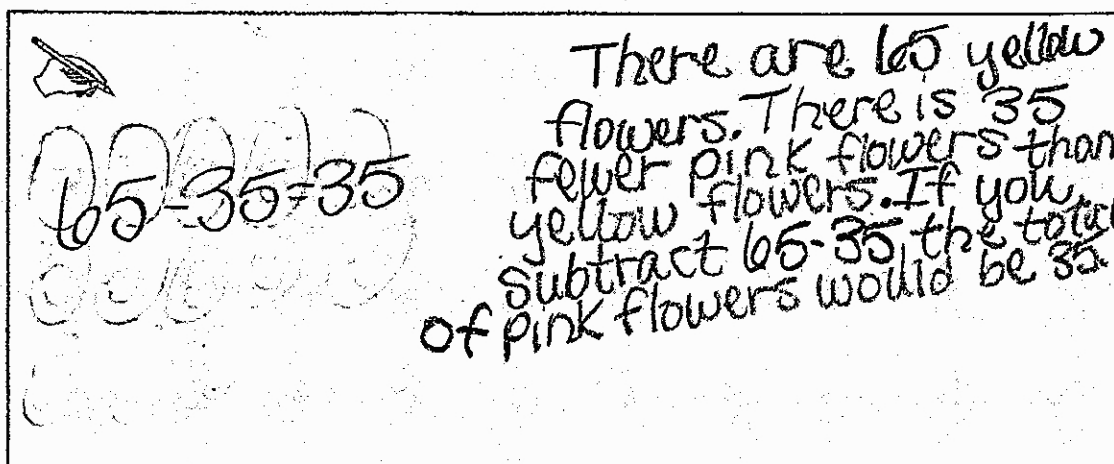 65-35=35
There are 65 yellow
flowers. There is 35
fewer pink flowers than
yellow flowers. If you
subtract 65-35, the total
of pink flowers would be 35.